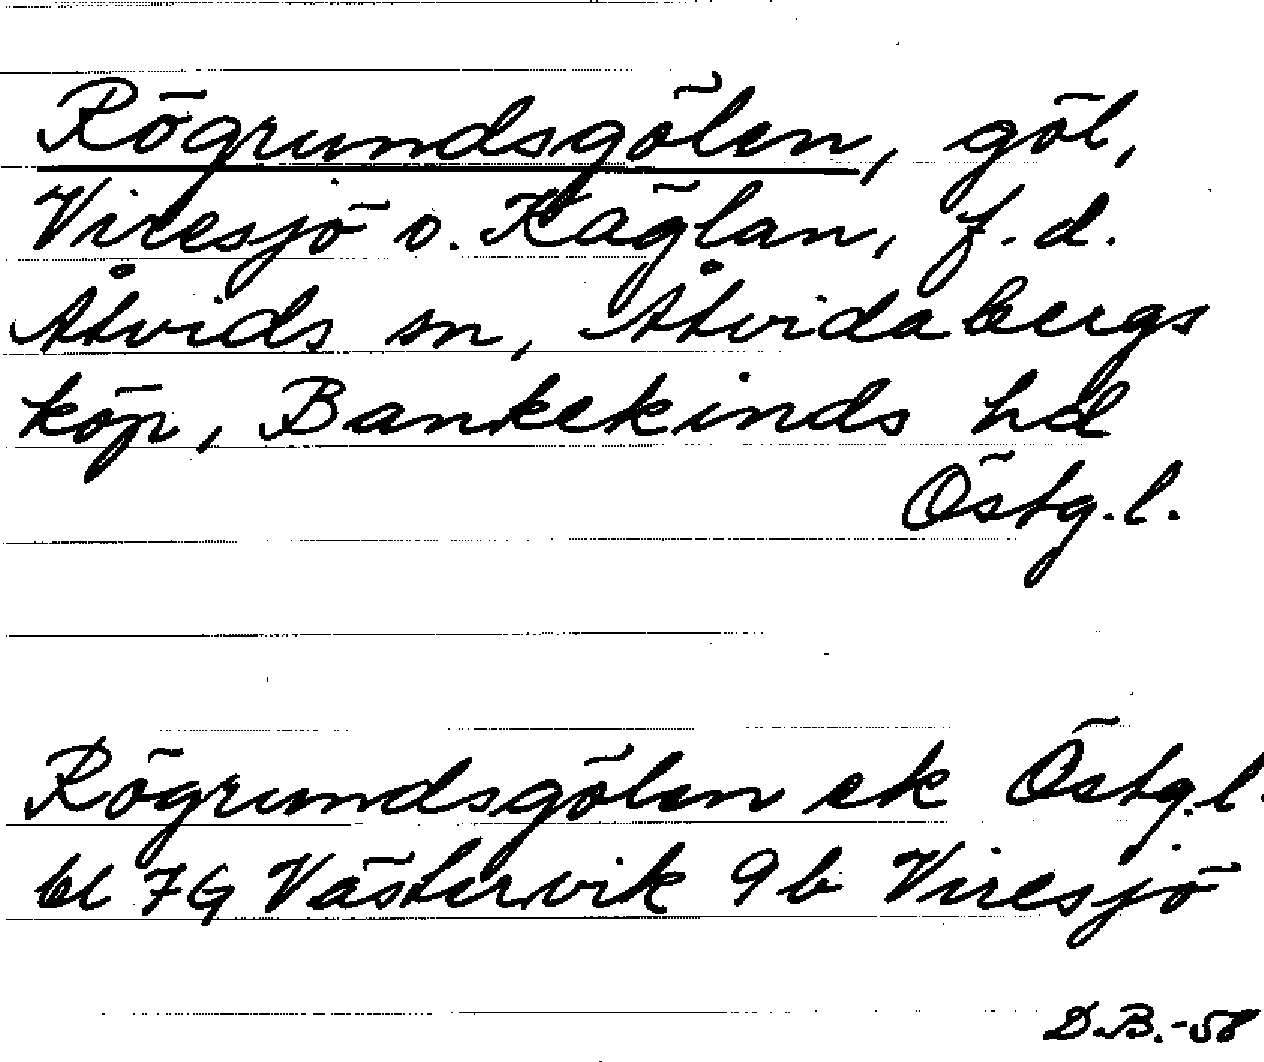 Rögrundsgölen, göl,
Viresjö o. Käglan, f.d.
Åtvids sn, Åtvidabergs
köp, Bankekinds hd
Östg.l.
Rögrundsgölen ek Östg.l.
bl 7G Västervik 9b Viresjö
D.B.-58